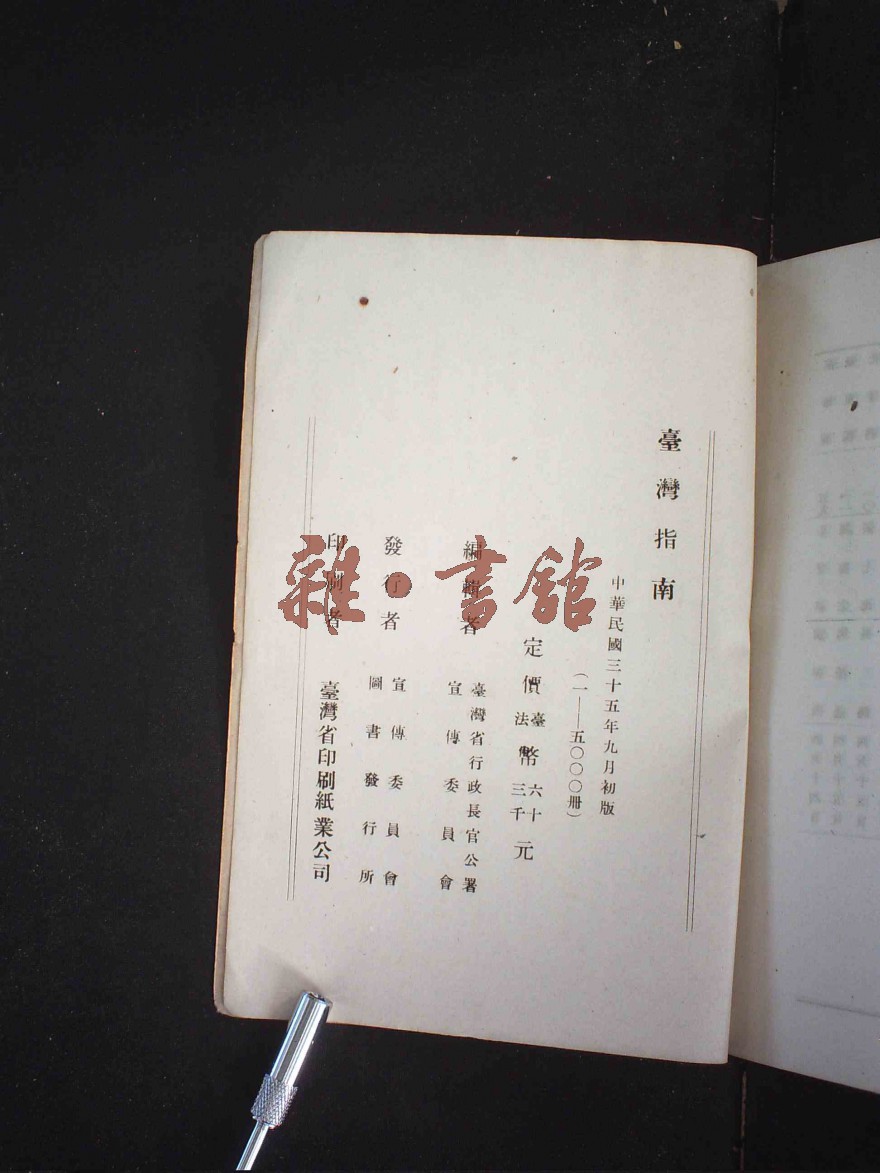 臺灣指南
中華民國三十五年九月初版
(一——五〇〇〇册)
定價臺幣六十元
法幣三千元
編輯者
臺灣省行政長官公署
宣傳委員會
發行者
宣傳委員會
圖書發行所
印刷者
臺灣省印刷紙業公司
雜·書館